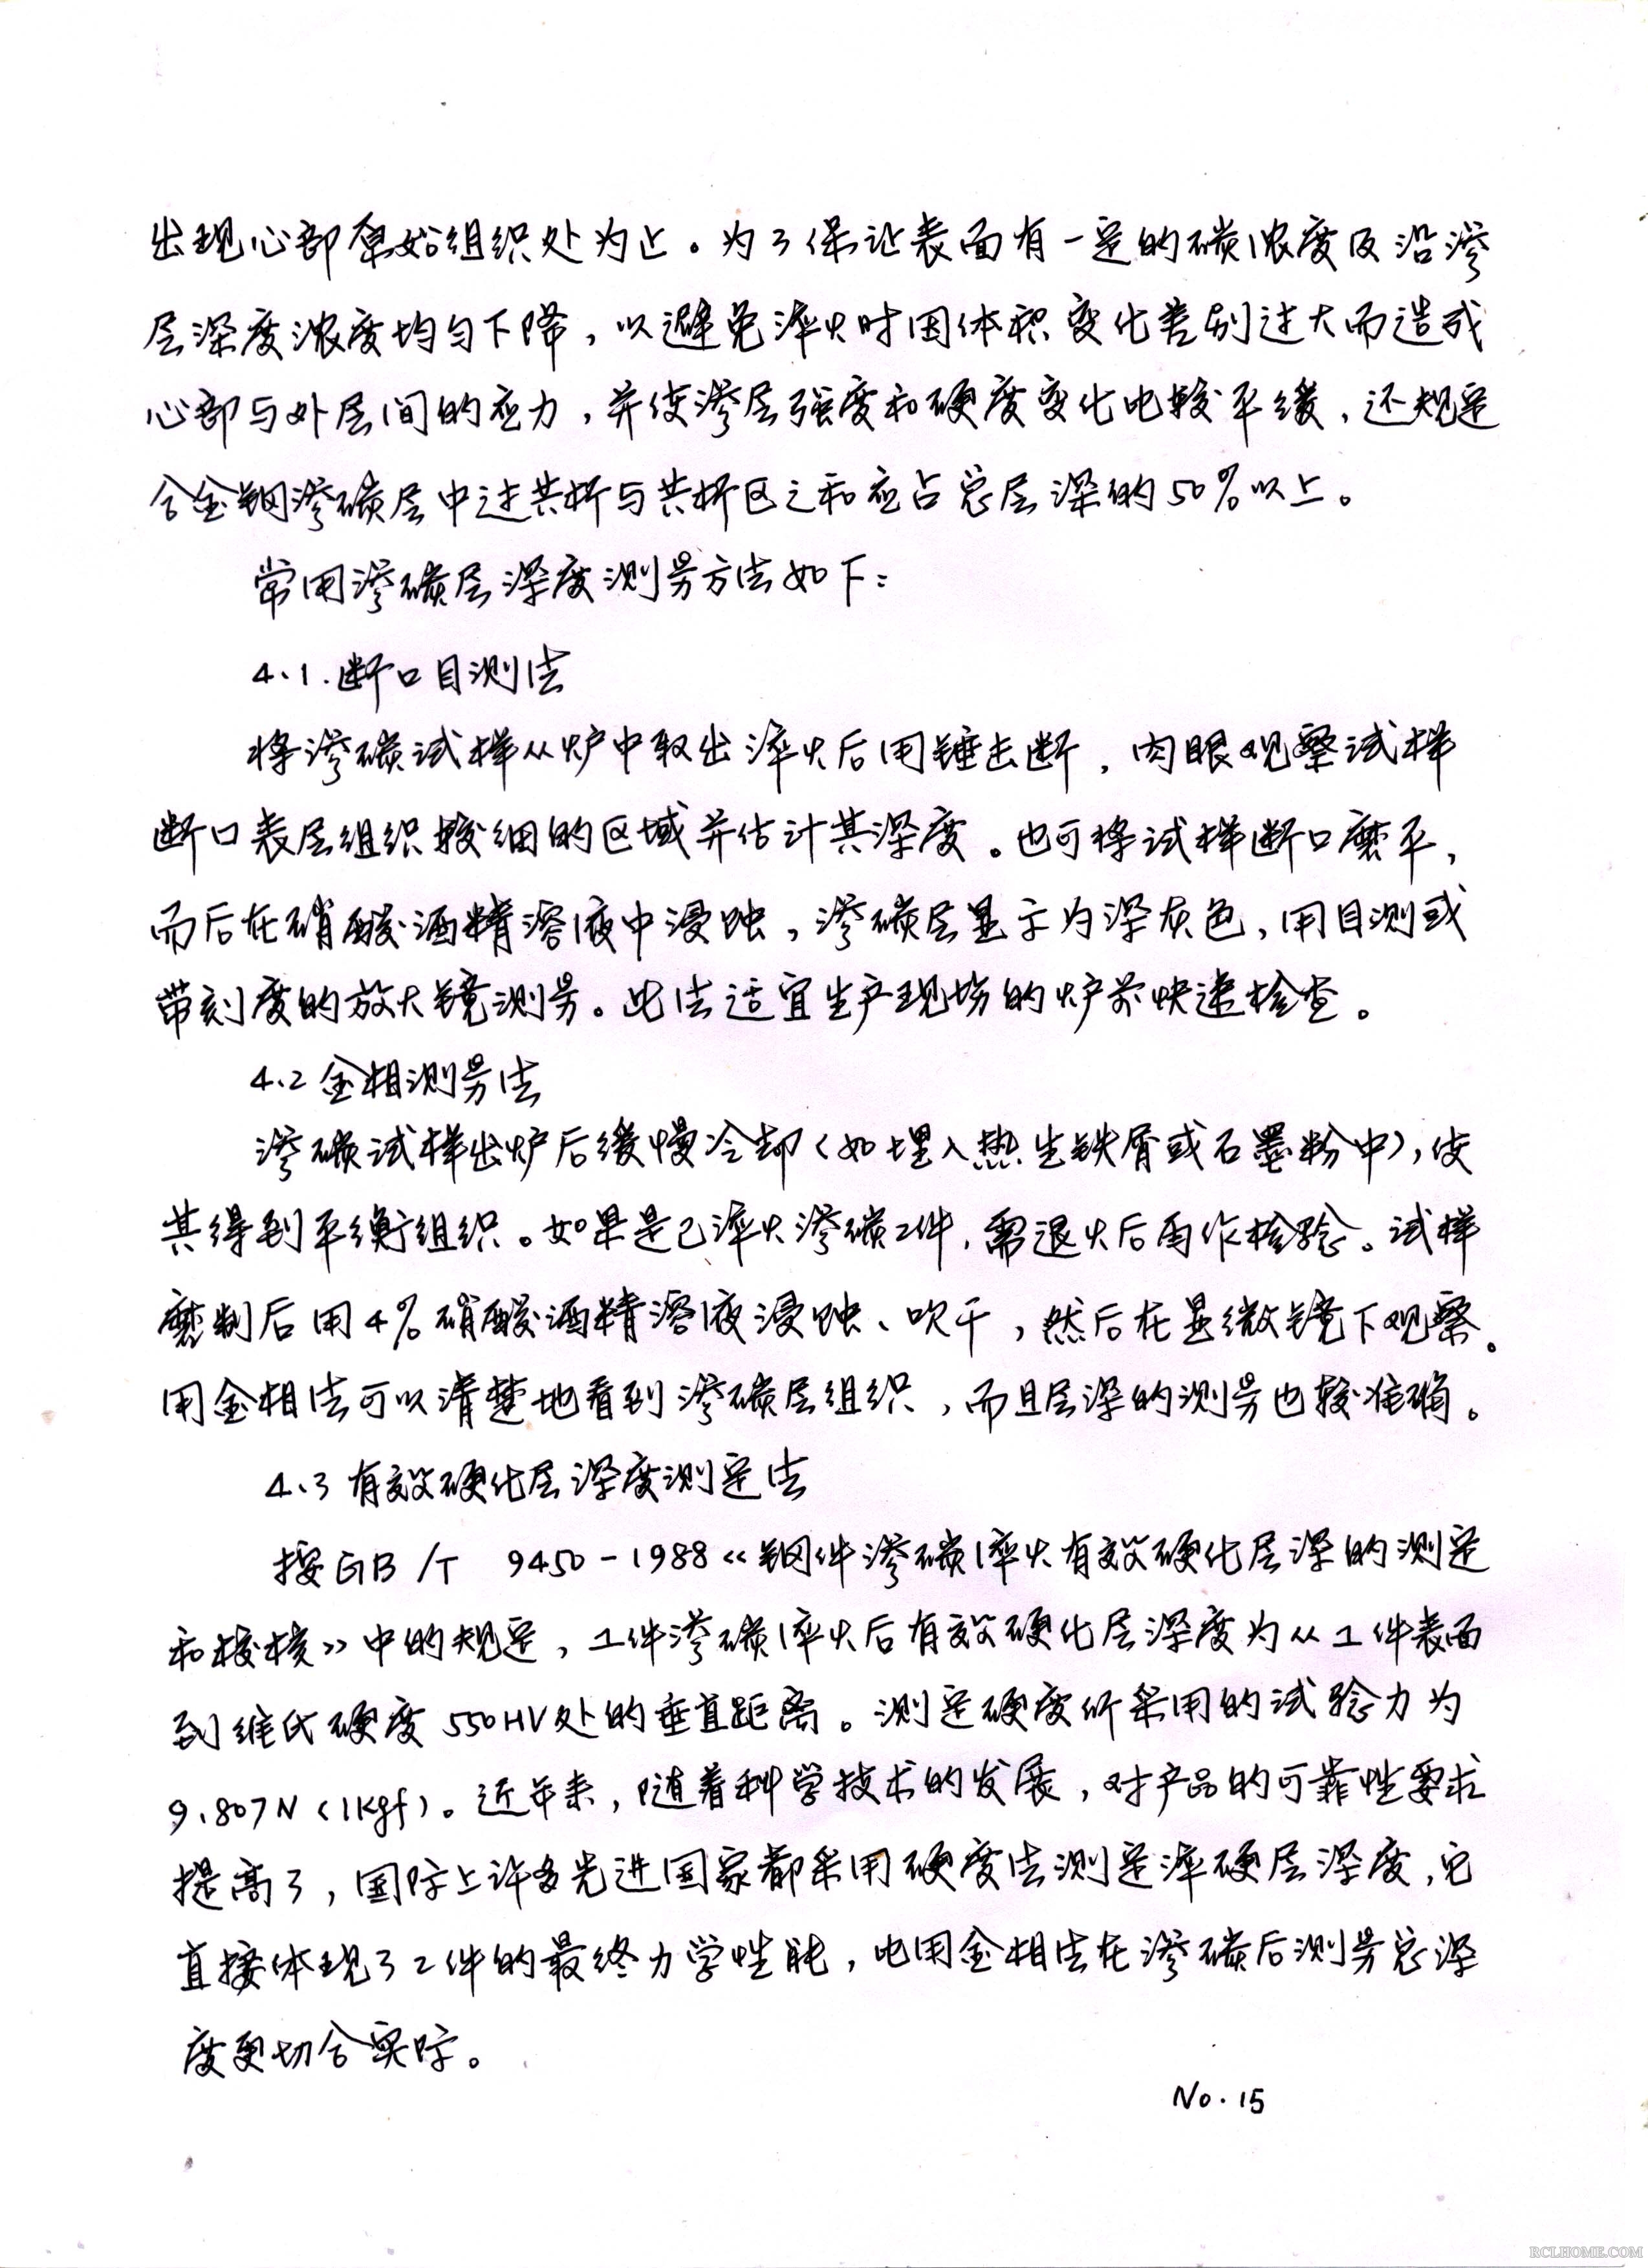 出现心部原始组织处为止。为了保证表面有一定的碳浓度及沿渗
层深度浓度均匀下降，以避免淬火时因体积变化差别过大而造成
心部与外层间的应力，并使渗层强度和硬度变化比较平缓，还规定
合金钢渗碳层中过共析与共析区之和应占总层深的50%以上。
常用渗碳层深度测量方法如下：
4.1.断口目测法
将渗碳试样从炉中取出淬火后用锤击断，肉眼观察试样
断口表层组织较细的区域并估计其深度。也可将试样断口磨平，
而后在硝酸酒精溶液中浸蚀，渗碳层显示为深灰色，用目测或
带刻度的放大镜测量。此法适宜生产现场的炉前快速检查。
4.2金相测量法
渗碳试样出炉后缓慢冷却（如埋入热生铁屑或石墨粉中），使
其得到平衡组织。如果是已淬火渗碳工件，需退火后再作检验。试样
磨制后用4%硝酸酒精溶液浸蚀、吹干，然后在显微镜下观察。
用金相法可以清楚地看到渗碳层组织，而且层深的测量也较准确。
4.3有效硬化层深度测定法
按GB/T 9450-1988《钢件渗碳淬火有效硬化层深的测定
和校核》中的规定，工件渗碳淬火后有效硬化层深度为从工件表面
到维氏硬度550HV处的垂直距离。测定硬度所采用的试验力为
9.807N（1Kgf）。近年来，随着科学技术的发展，对产品的可靠性要求
提高了，国际上许多先进国家都采用硬度法测定淬硬层深度，它
直接体现了工件的最终力学性能，比用金相法在渗碳后测量总深
度更切合实际。
No.15
RCLHOME.COM